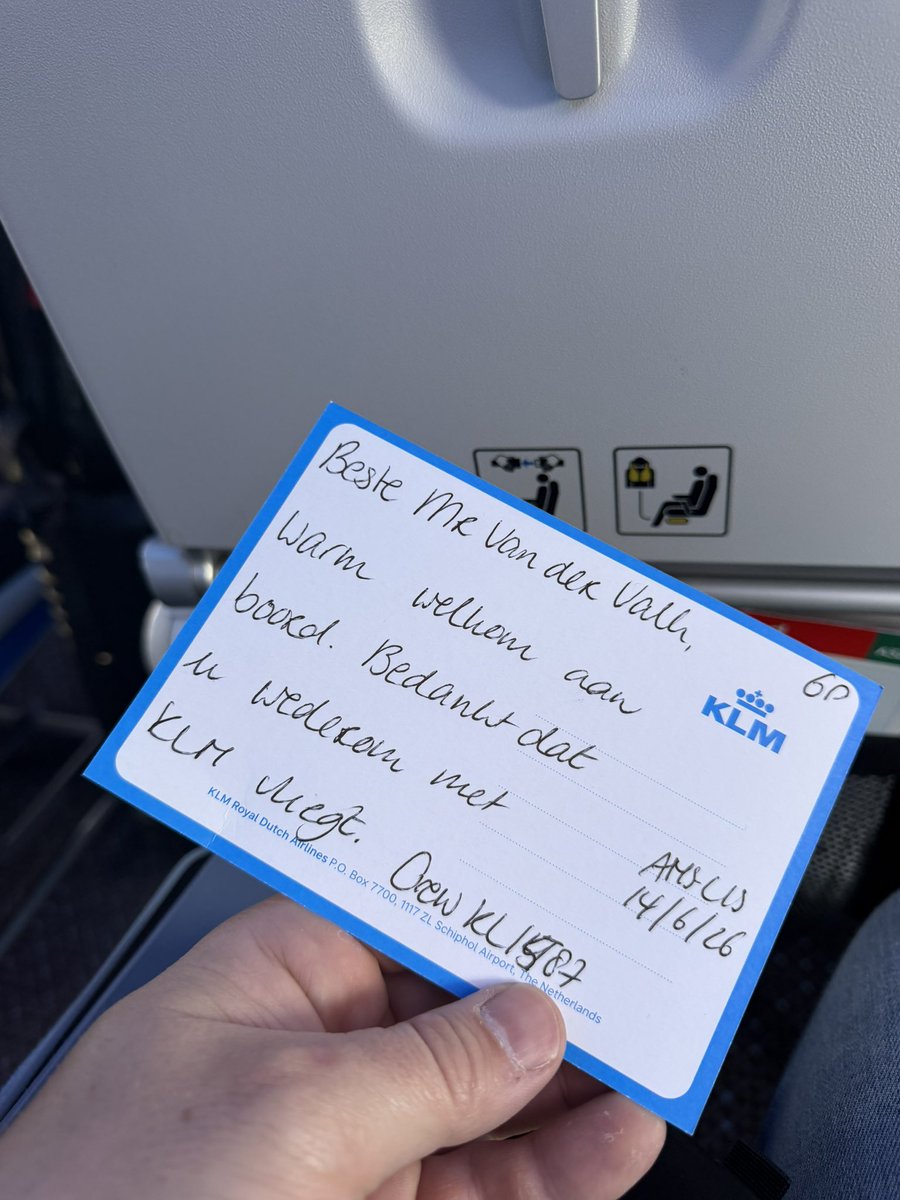 Beste Mr Van der Valk,
Warm welkom aan
boord. Bedankt dat
u wederom met
KLM vliegt.
6D
KLM
AMS-LIS
14/6/26
Crew KL1587
KLM Royal Dutch Airlines P.O. Box 7700, 1117 ZL Schiphol Airport, The Netherlands